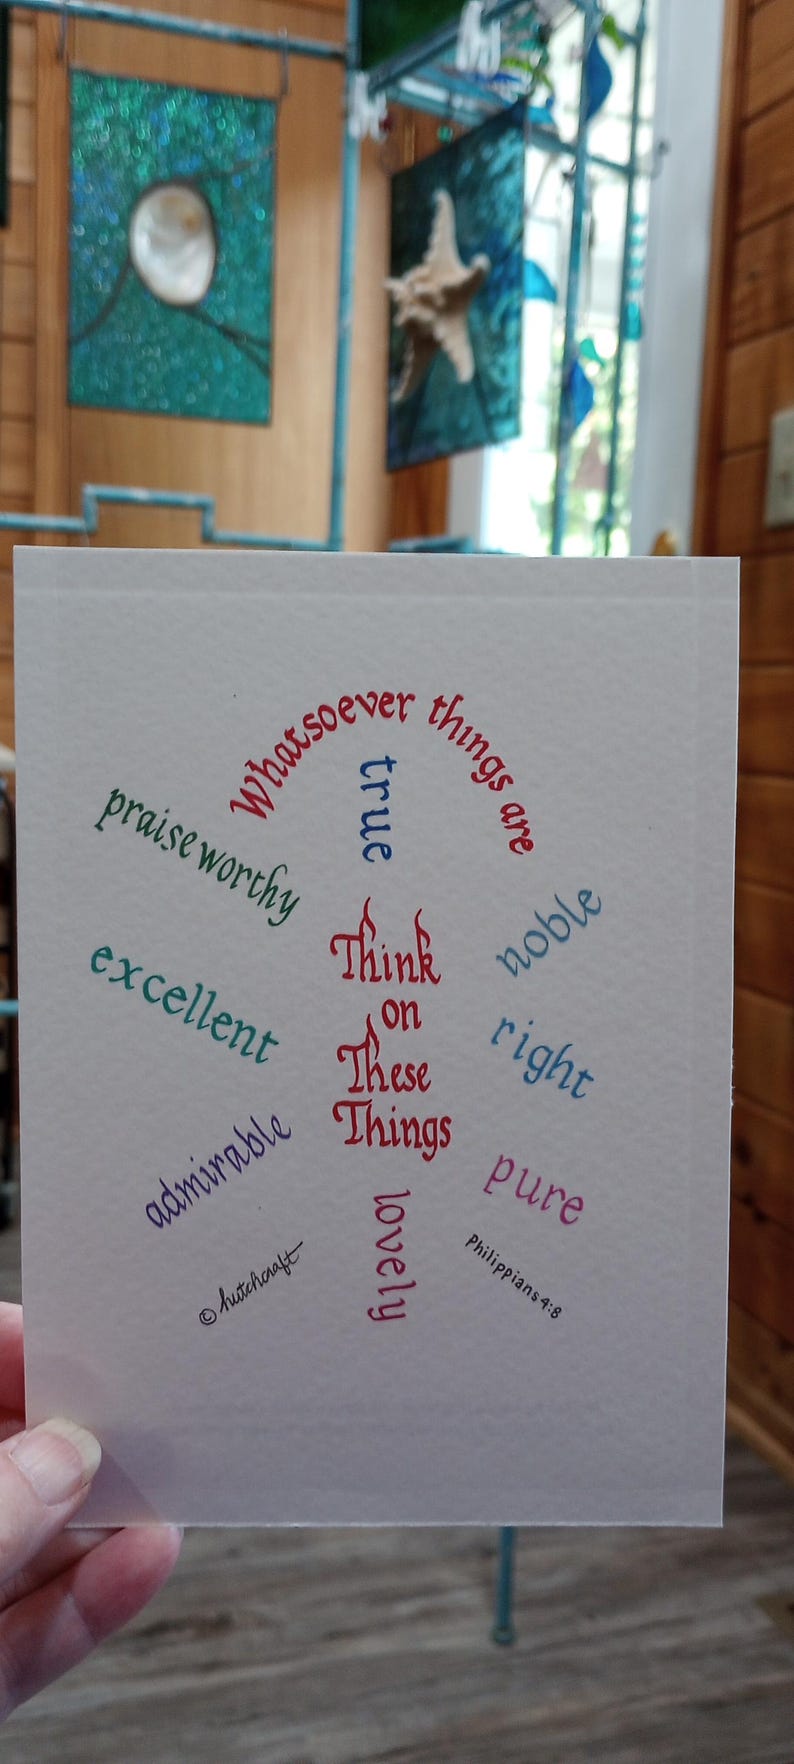 Whatsoever things are
true
noble
right
pure
lovely
admirable
excellent
praiseworthy
Think
on
These
Things
Philippians 4:8
© hutchcraft